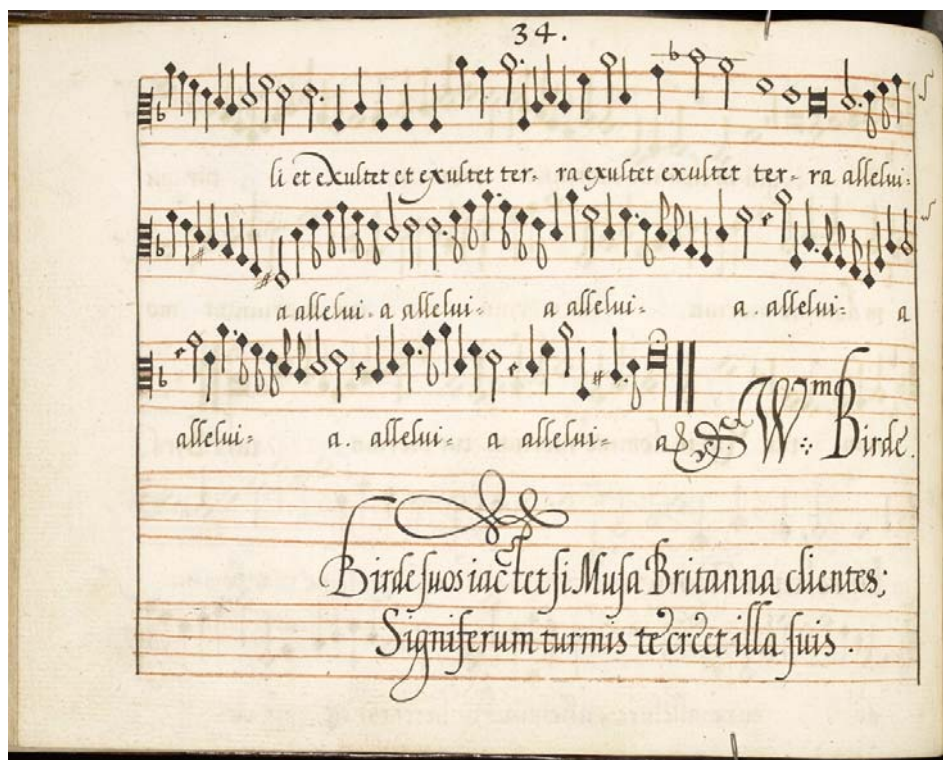 34.
li et exultet et exultet ter- ra exultet exultet ter- ra allelui-
a allelui- a allelui- a allelui- a. allelui- a
allelui- a. allelui- a allelui- a
Wm: Birde.
Birde suos iactet si Musa Britanna clientes;
Signiferum turmis te creet illa suis.